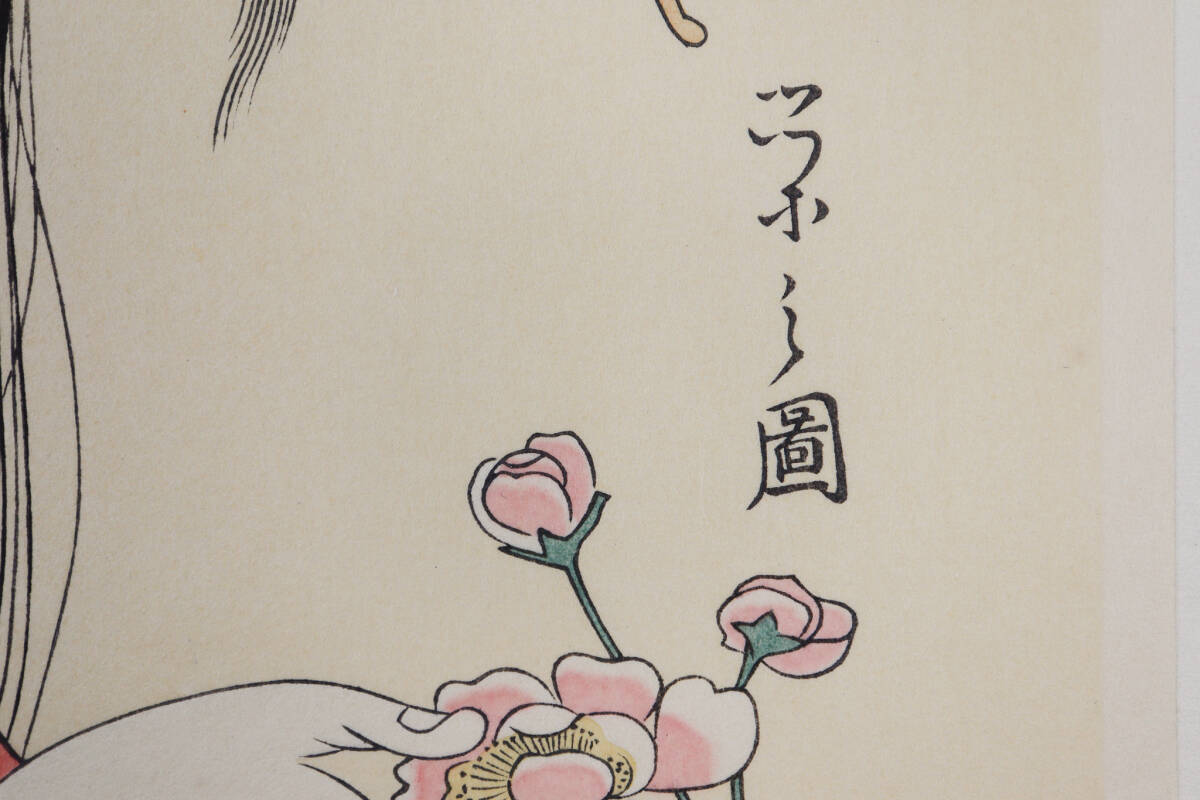 栄之圖